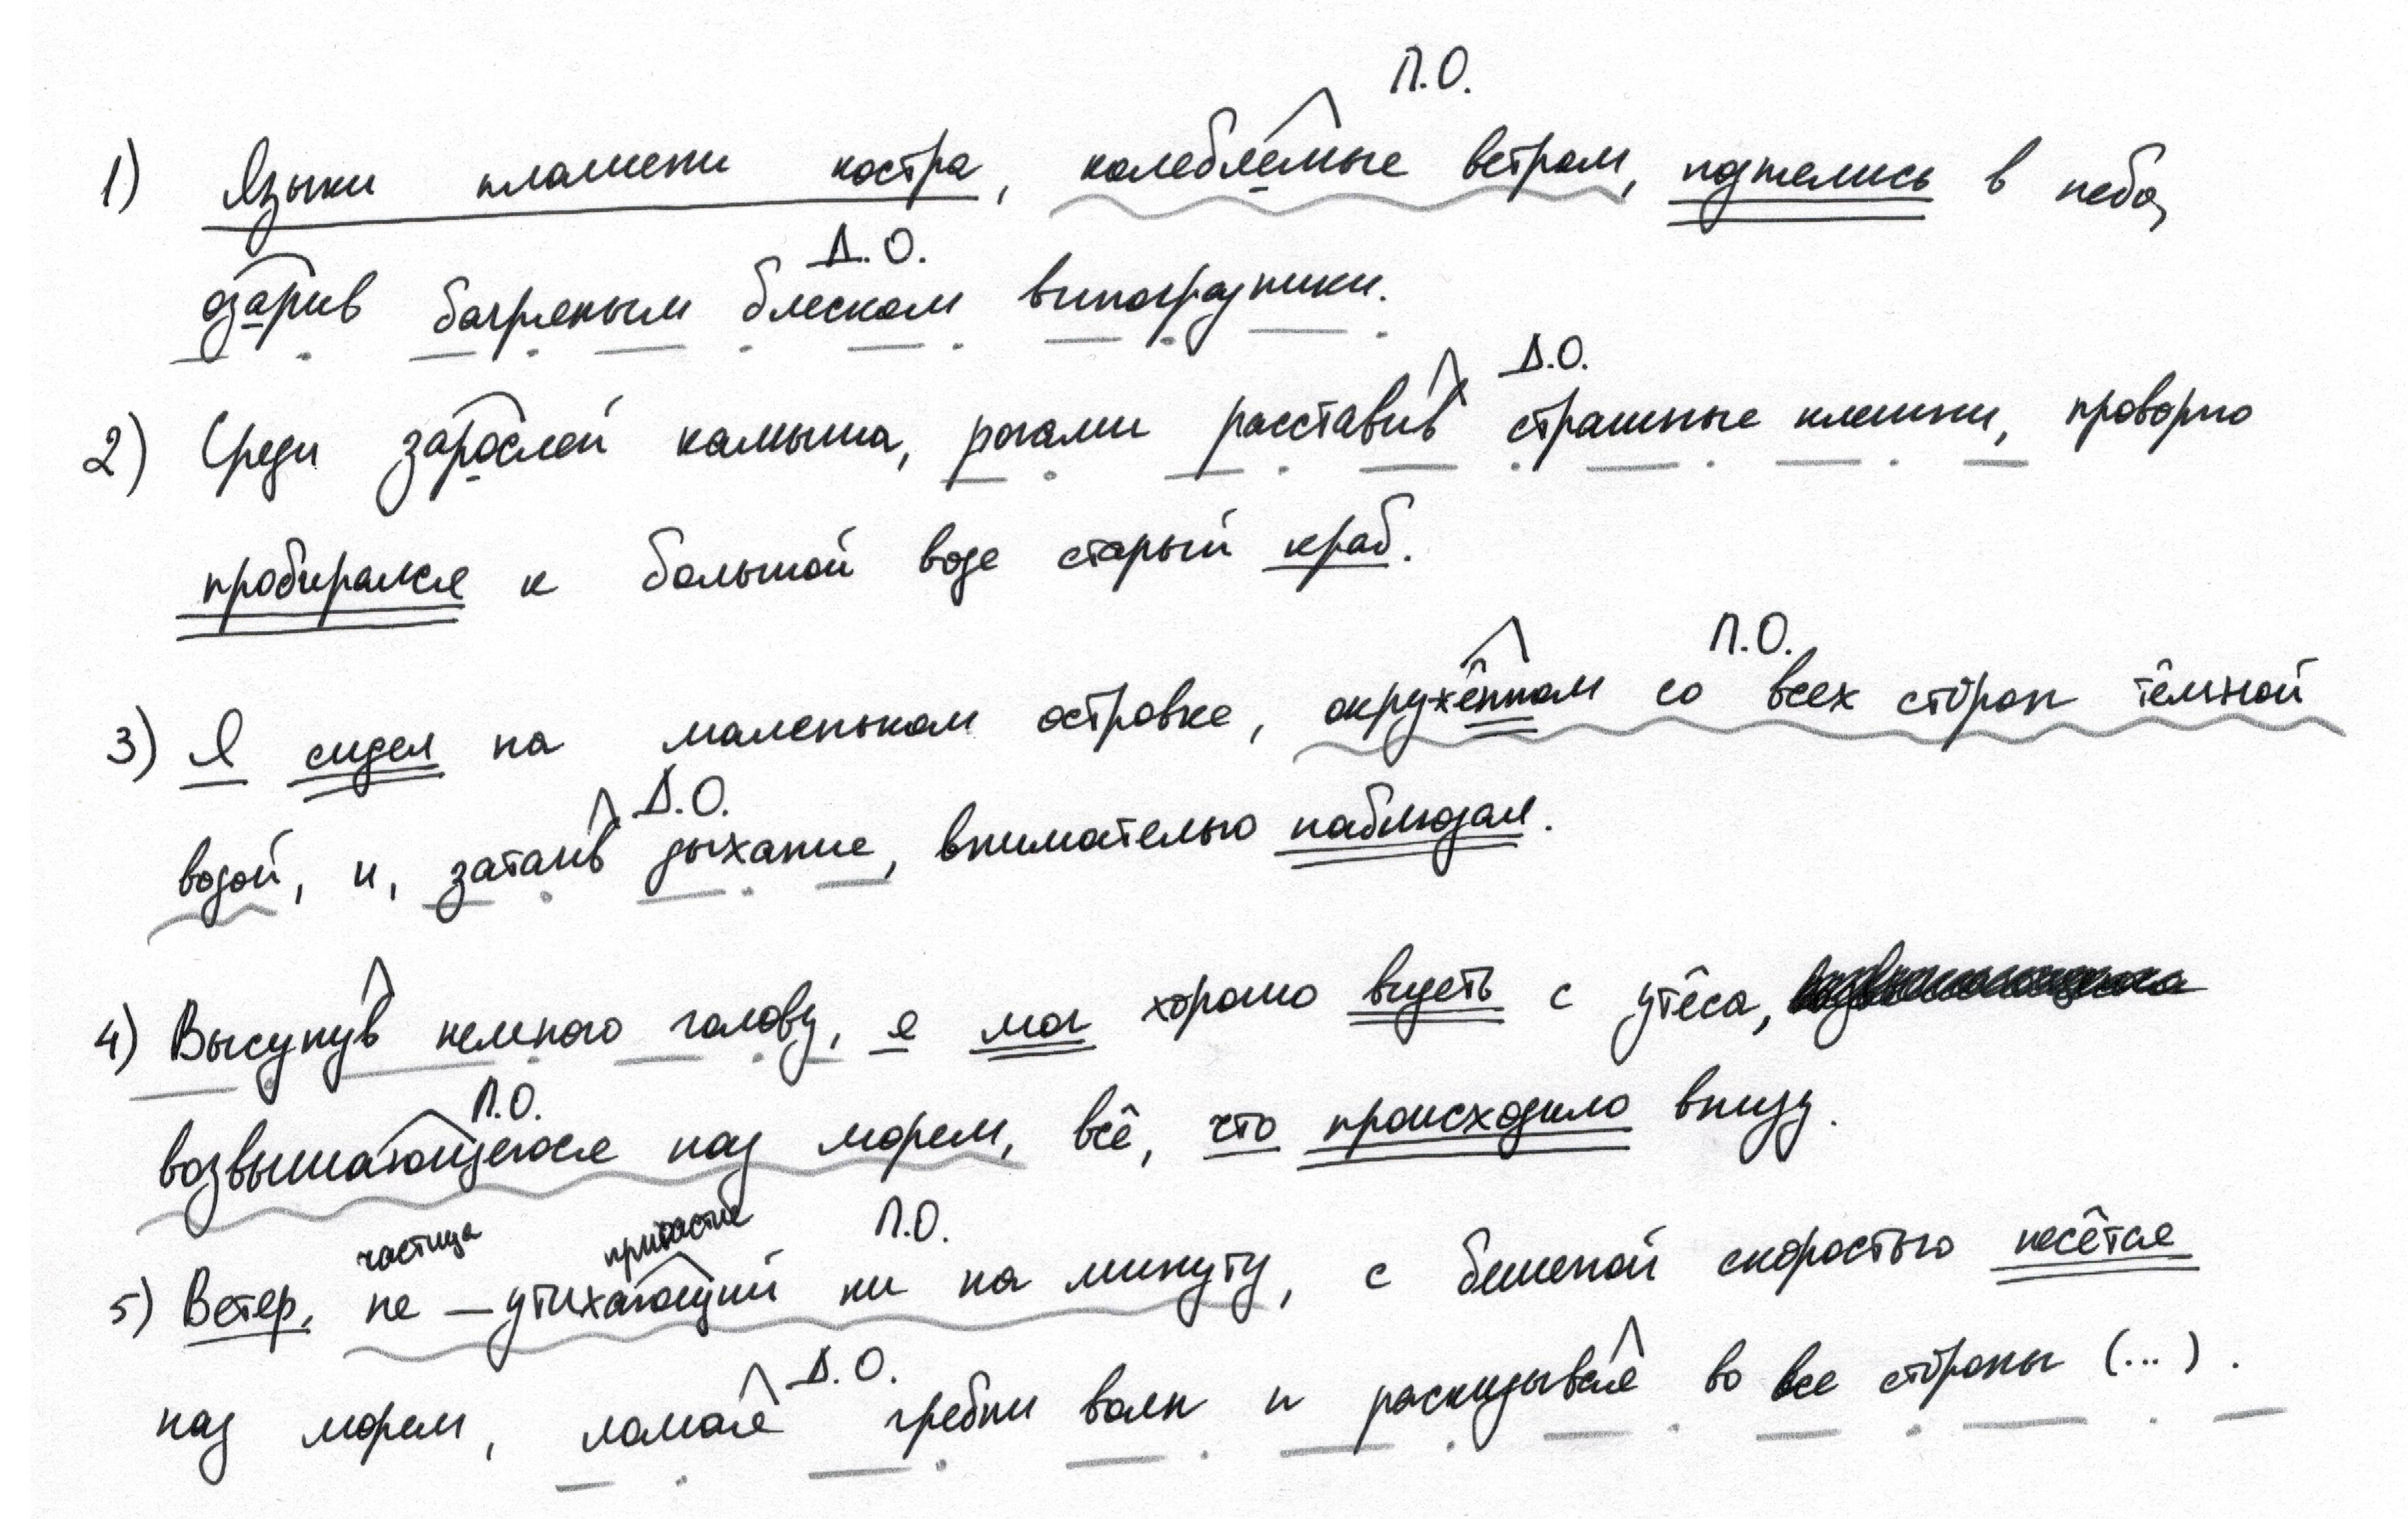 П.О.
1) Языки пламени костра, колеблемые ветром, поднялись в небо,
Д.О.
озарив багряным блеском виноградники.
Д.О.
2) Среди зарослей камыша, рогами расставив страшные клешни, проворно
пробирался к большой воде старый краб.
П.О.
3) Я сидел на маленьком островке, окружённом со всех сторон тёмной
Д.О.
водой, и, затаив дыхание, внимательно наблюдал.
4) Высунув немного голову, я мог хорошо видеть с утёса,
П.О.
возвышающегося над морем, всё, что происходило внизу.
частица причастие П.О.
5) Ветер, не — утихающий ни на минуту, с бешеной скоростью несётся
Д.О.
над морем, ломая гребни волн и раскидывая во все стороны (...).